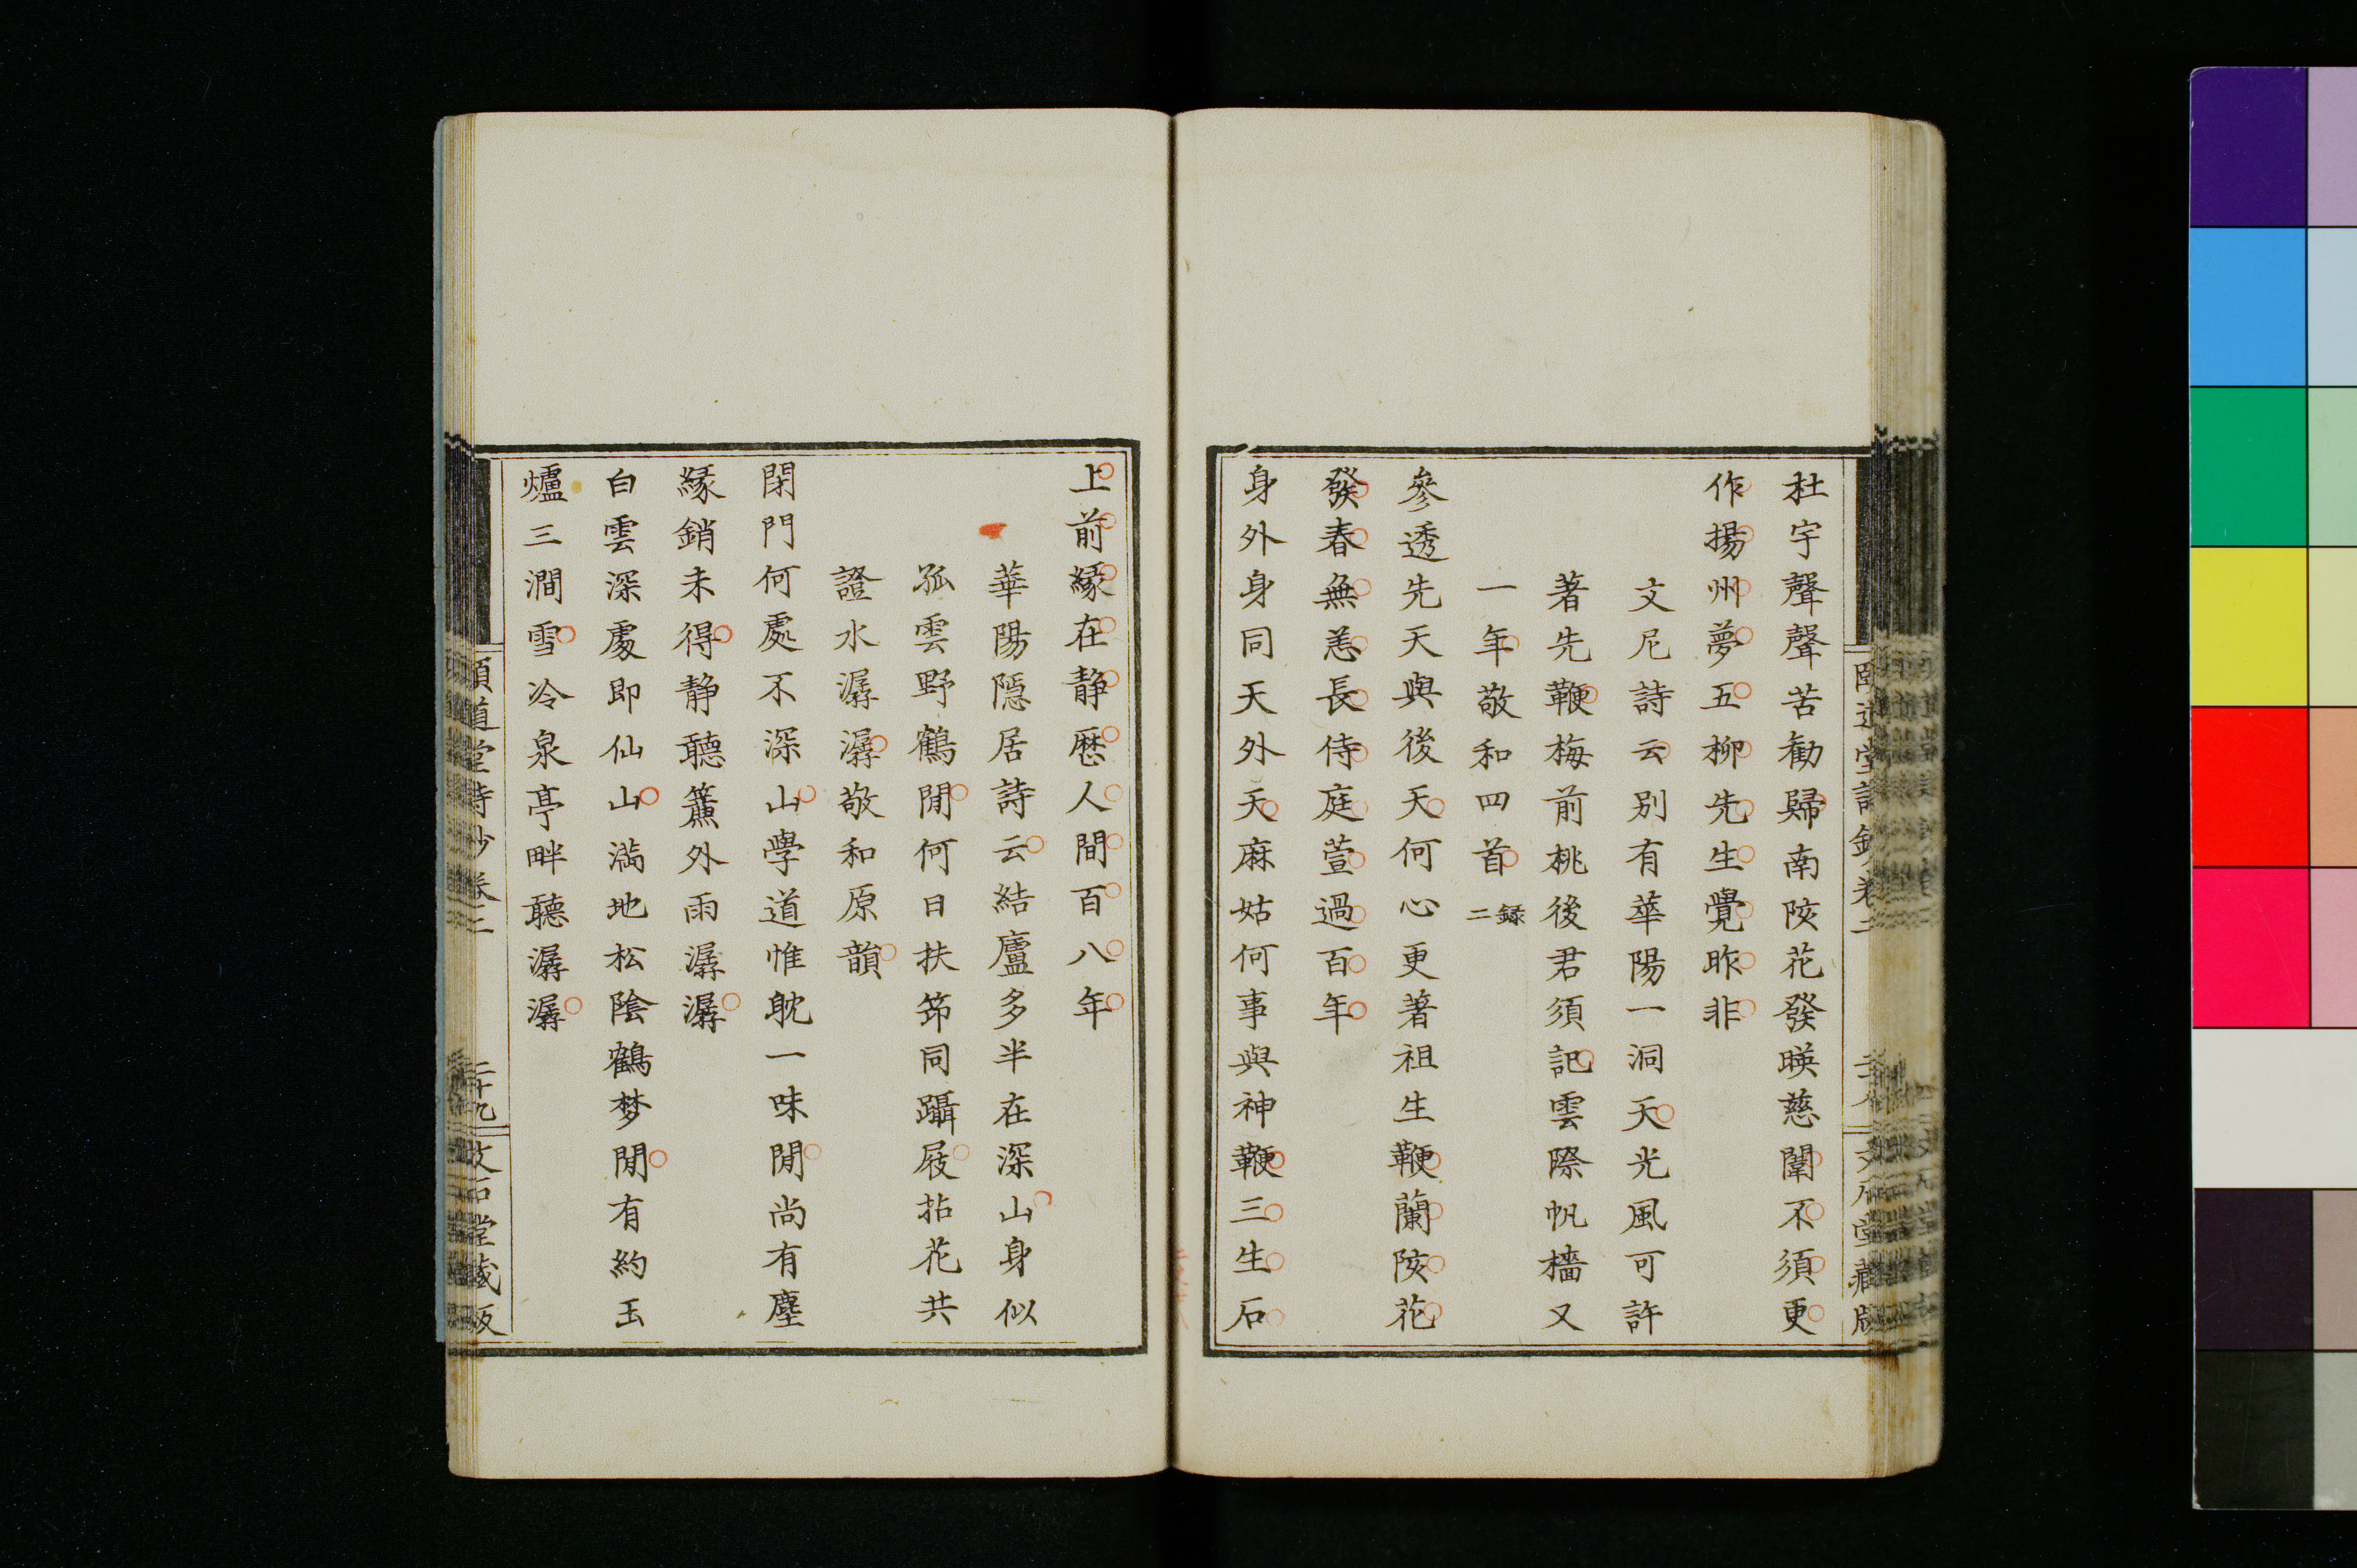 杜宇聲聲苦勸歸南陔花發暎慈闈不須更
作揚州夢五柳先生覺昨非
文尼詩云別有華陽一洞天光風可許
著先鞭梅前桃後君須記雲際帆檣又
一年敬和四首錄二
參透先天與後天何心更著祖生鞭蘭陔花
發春無恙長侍庭萱過百年
身外身同天外天麻姑何事與神鞭三生石
上前緣在静歷人間百八年
華陽隱居詩云結廬多半在深山身似
孤雲野鶴閒何日扶筇同躡屐拈花共
證水潺潺敬和原韻
閉門何處不深山學道惟耽一味閒尚有塵
緣銷未得静聽簾外雨潺潺
白雲深處即仙山滿地松陰鶴梦閒有約玉
爐三澗雪冷泉亭畔聽潺潺
頤道堂詩鈔卷二
二十九